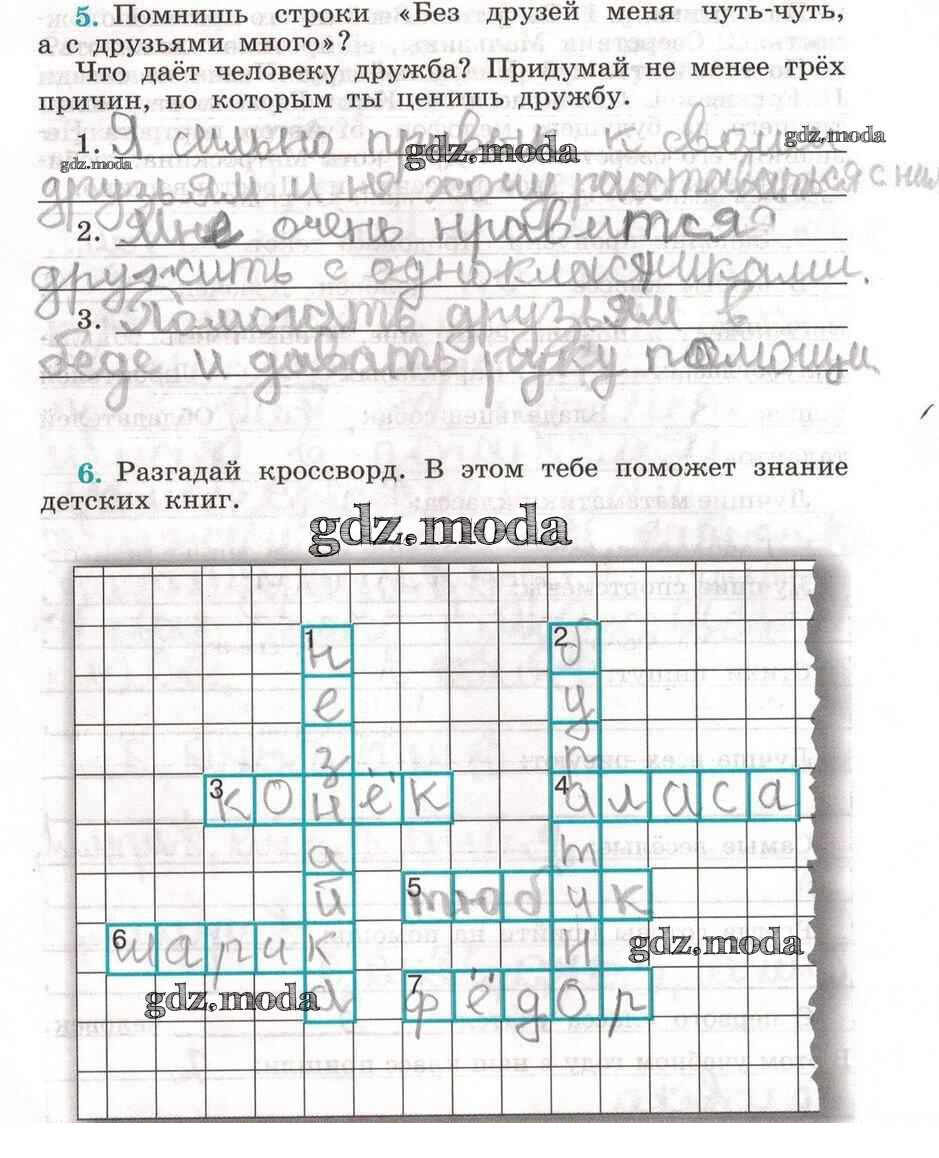 5. Помнишь строки «Без друзей меня чуть-чуть,
а с друзьями много»?
Что даёт человеку дружба? Придумай не менее трёх
причин, по которым ты ценишь дружбу.
1. Я сильно привык к своим
gdz.moda gdz.moda gdz.moda
друзьям и не хочу расставаться с ним
2. Мне очень нравится
дружить с одноклассниками.
3. Помогать друзьям в
беде и давать руку помощи
6. Разгадай кроссворд. В этом тебе поможет знание
детских книг.
gdz.moda
1 н 2 б
е у
з р
3 к о н ё к 4 а л а с а
а т
й 5 т ю б и к
6 ш а р и к н
gdz.moda
gdz.moda
а 7 ф ё д о р